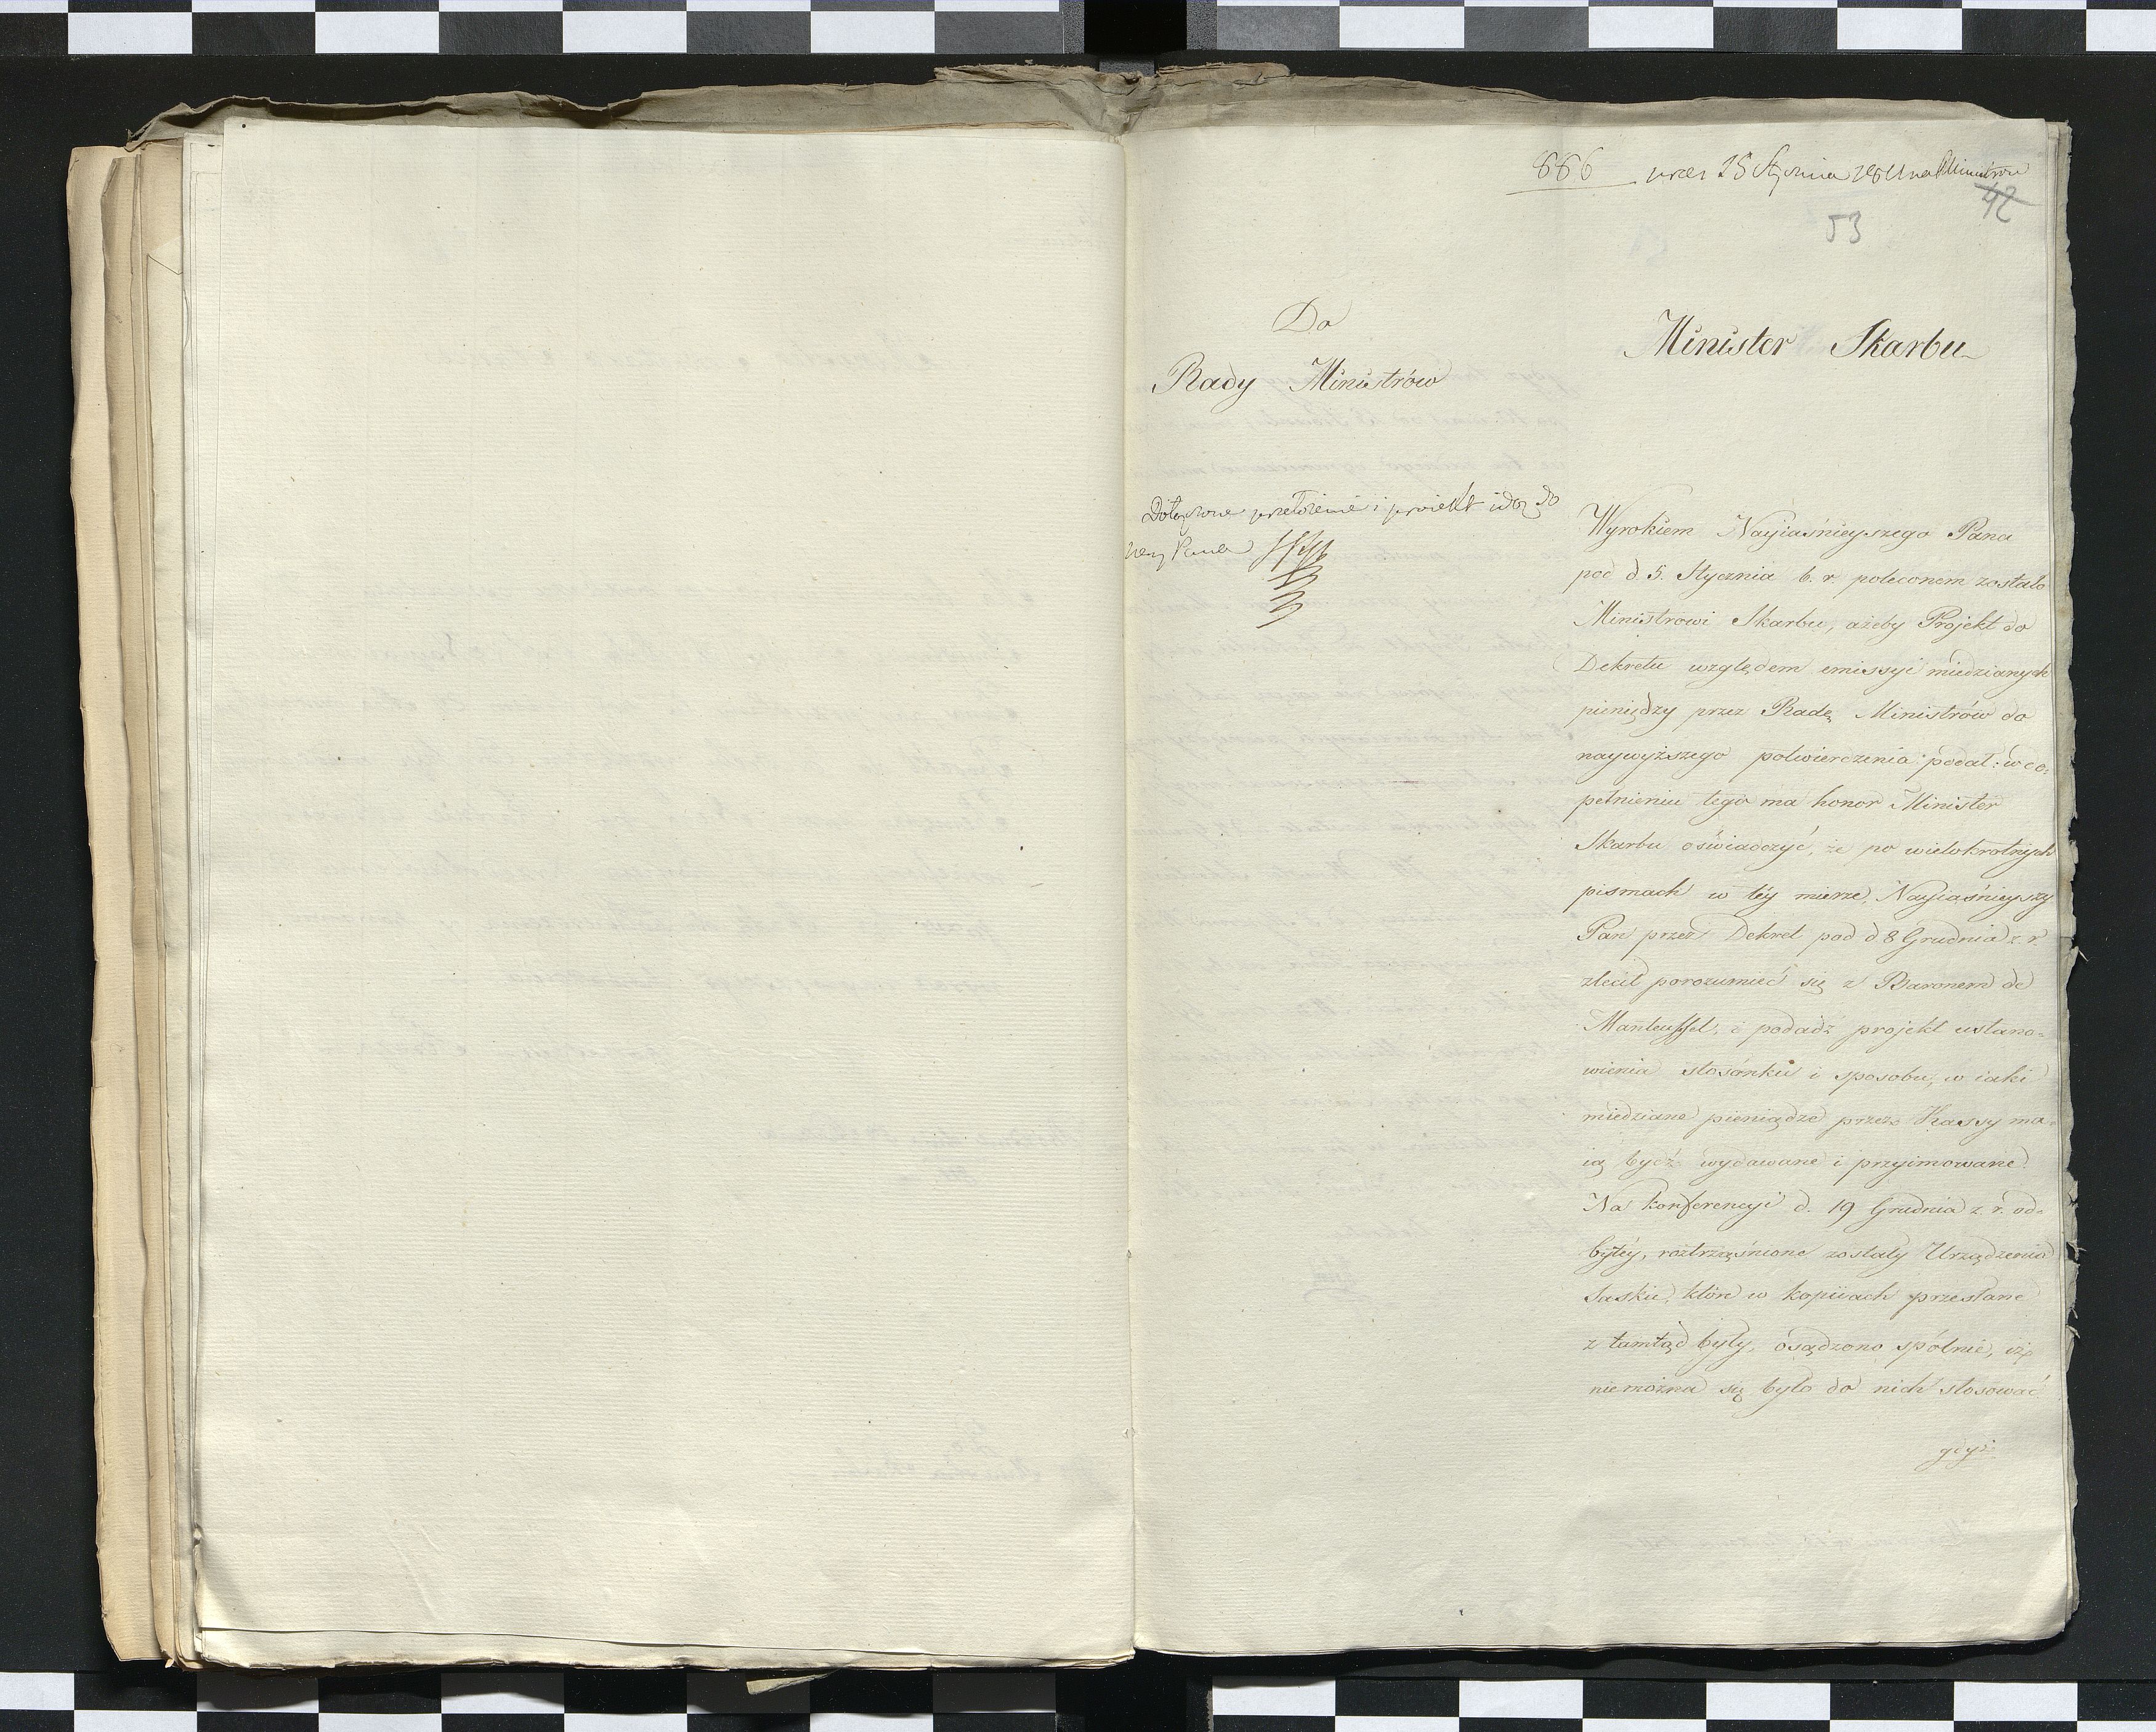 886 pres 15 Stycznia 1811 na R Ministrów
42
53
Do
Rady Ministrów
Minister Skarbu
Dołączone przełożenie i proiekt idą do
Nayj Pana
Wyrokiem Nayiaśnieyszego Pana
pod d. 5. Stycznia b. r. poleconem zostało
Ministrowi Skarbu, ażeby Projekt do
Dekretu względem emissyi miedzianych
pieniędzy przez Radę Ministrów do
naywyższego potwierdzenia podał: w do=
pełnieniu tego ma honor Minister
Skarbu oświadczyć, że po wielokrotnych
pismach w téy mierze, Nayiaśnieyszy
Pan przez Dekret pod d 8 Grudnia z. r.
zlecił porozumieć się z Baronem de
Manteuffel, i podadź projekt ustano=
wienia stosónku i sposobu, w iaki
miedziane pieniądze przez Kassy ma=
ią bydź wydawane i przyimowane.
Na konferencyi d. 19 Grudnia z. r. od=
bytéy, roztrząśnione zostały Urządzenia
Saskie, które w kopiiach przesłane
z tamtąd były, osądzono spólnie, iż
niemożna się było do nich stosować
gdyż